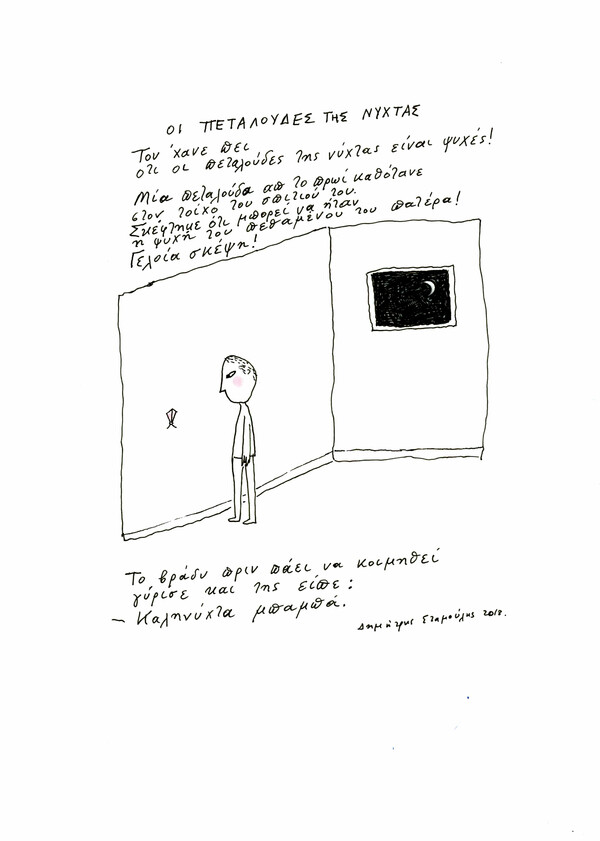 ΟΙ ΠΕΤΑΛΟΥΔΕΣ ΤΗΣ ΝΥΧΤΑΣ
Του 'χανε πει
οτι οι πεταλούδες της νύχτας είναι ψυχές!
Μία πεταλούδα απ το πρωί καθότανε
στον τοίχο του σπιτιού του.
Σκέφτηκε ότι μπορεί να ήταν
η ψυχή του πεθαμένου του πατέρα!
Γελοία σκέψη!
Το βράδυ πριν πάει να κοιμηθεί
γύρισε και της είπε:
– Καληνύχτα μπαμπά.
Δημήτρης Σταμούλης 2018.